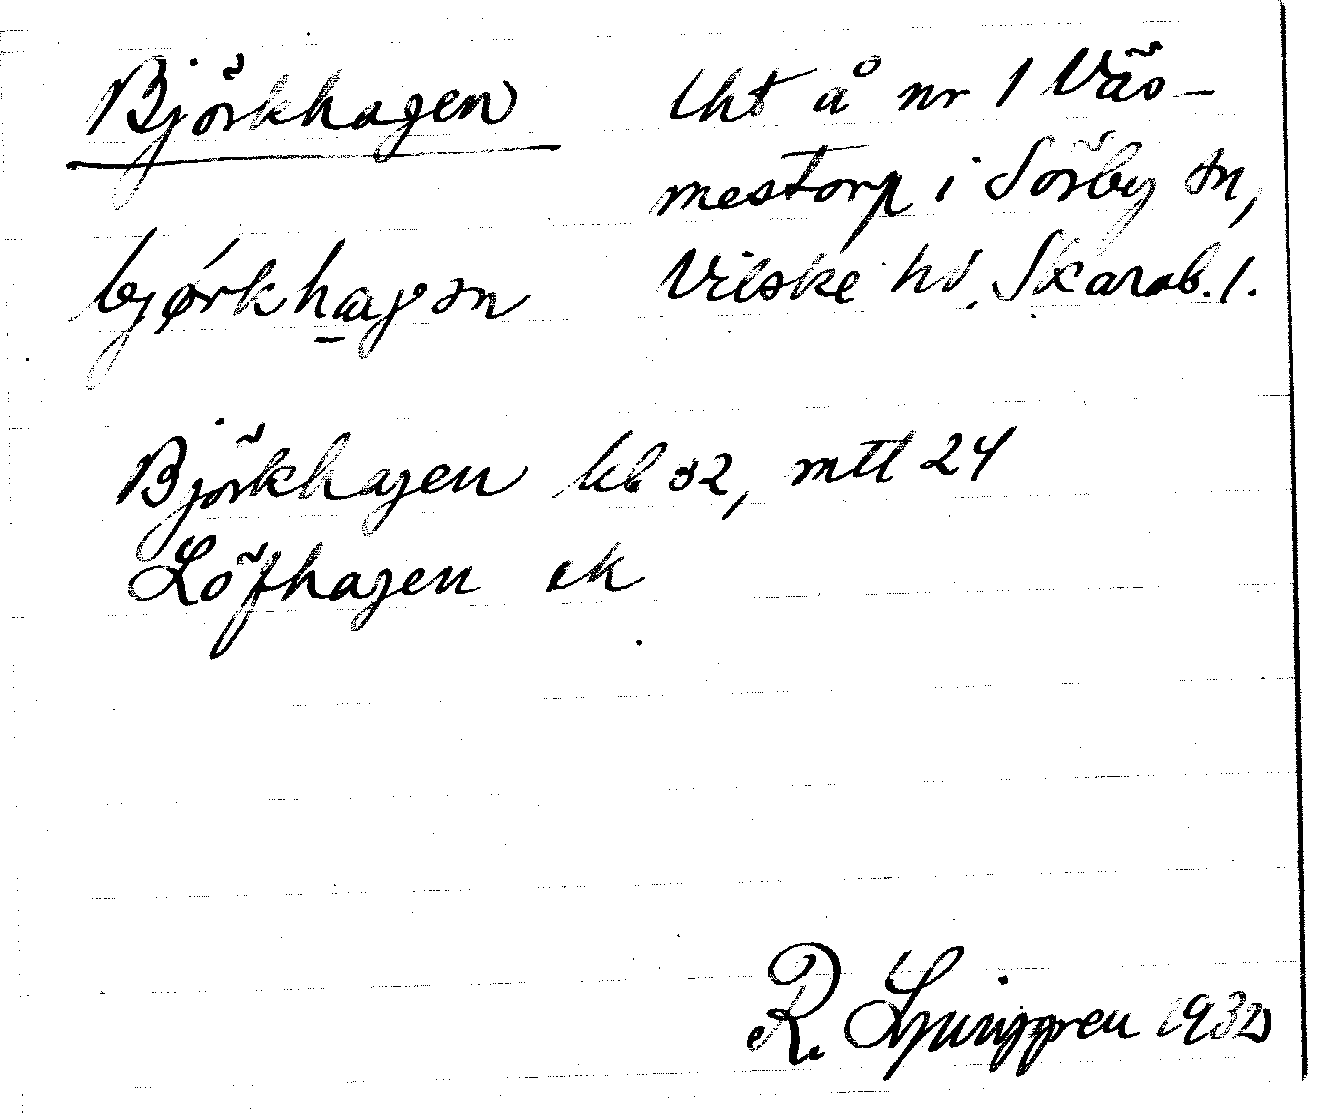 Björkhagen
Uht å nr 1 Väs-
mestorp i Sörby sn,
Vilske hd. Skarab. l.
bjørkhagən
Björkhagen kb 32, mtl 24
Löfhagen ek
R. Ljunggren 1932